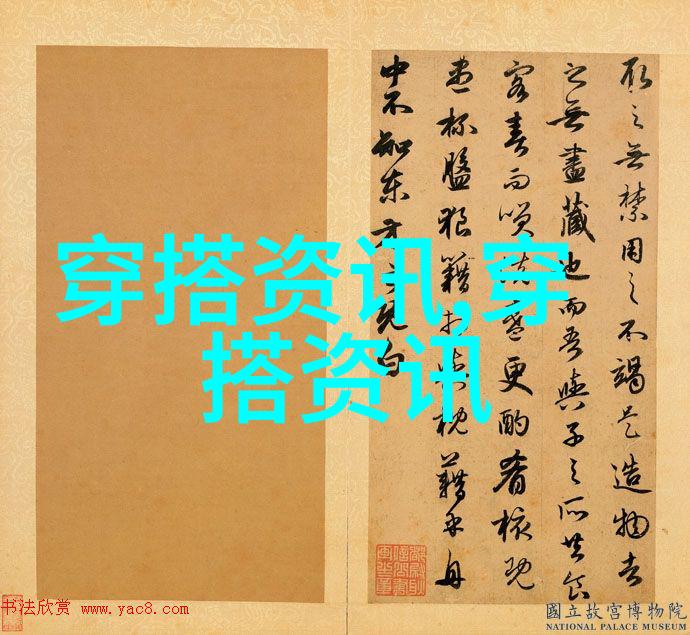 取之無禁用之不竭是造物者
之無盡藏也而吾與子之所共食
客喜而笑洗盞更酌肴核既
盡杯盤狼籍相與枕藉乎舟
中不知東方之既白
穿搭资讯,穿
搭资讯
书法欣赏 www.yac8.com
國立故宮博物院
NATIONAL PALACE MUSEUM